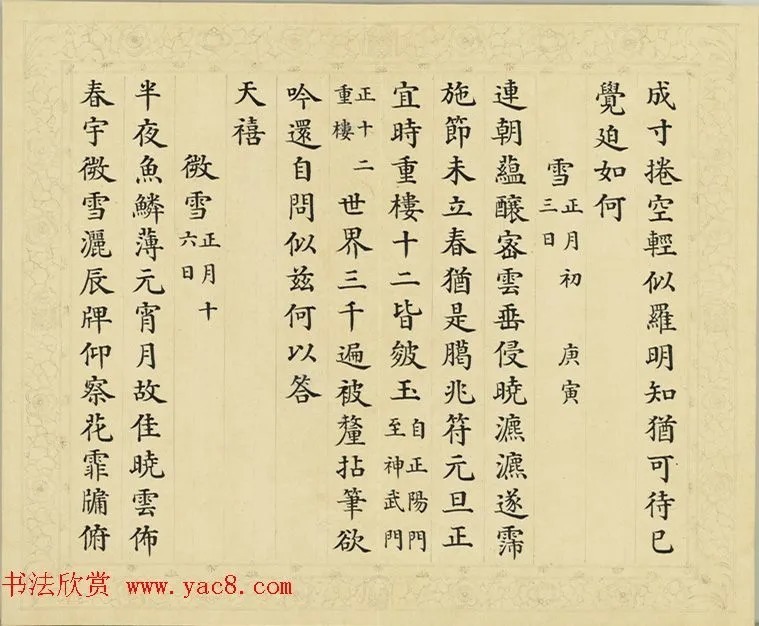 成寸捲空輕似羅明知猶可待已
覺廹如何
雪正月初三日 庚寅
連朝藴釀宻雲垂侵曉瀌瀌遂霈
施節未立春猶是臈兆符元旦正
宜時重樓十二皆皴玉自正陽門至神武門
正十二重樓世界三千遍被釐拈筆欲
吟還自問似兹何以答
天禧
微雪正月十六日
半夜魚鱗薄元宵月故佳曉雲佈
春宇微雪灑辰牌仰察花霏牖俯
书法欣赏 www.yac8.com